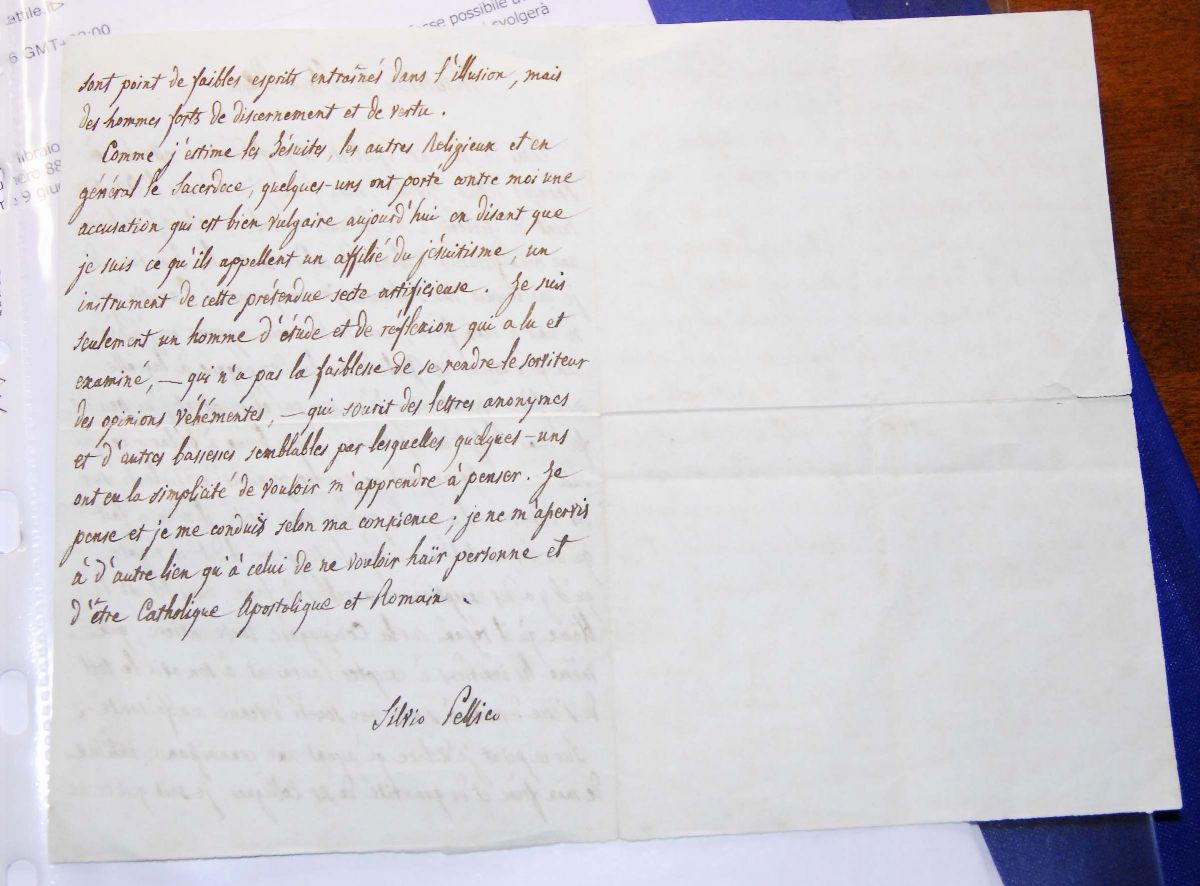 attile.it>
6 GMT+02:00
sse possibile a
svolgerà
libraio
ero 88
9 giu
sont point de faibles esprits entraînés dans l'illusion, mais
des hommes forts de discernement et de vertu.
Comme j'estime les Jésuites, les autres Religieux et en
général le Sacerdoce, quelques-uns ont porté contre moi une
accusation qui est bien vulgaire aujourd'hui en disant que
je suis ce qu'ils appellent un affilié du jésuitisme, un
instrument de cette prétendue secte artificieuse. Je suis
seulement un homme d'étude et de réflexion qui a lu et
examiné, — qui n'a pas la faiblesse de se rendre le serviteur
des opinions véhémentes, — qui sourit des lettres anonymes
et d'autres bassesses semblables par lesquelles quelques-uns
ont eu la simplicité de vouloir m'apprendre à penser. Je
pense et je me conduis selon ma conscience; je ne m'asservis
à d'autre lien qu'à celui de ne vouloir haïr personne et
d'être Catholique Apostolique et Romain.
Silvio Pellico